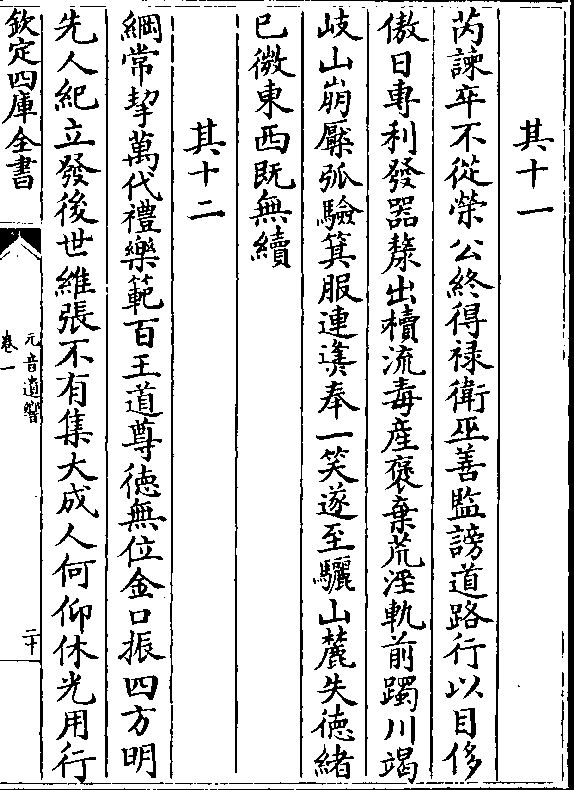 其十一
芮諫卒不從榮公終得禄衛巫善監謗道路行以目侈
傲日專利發器漦出櫝流毒產褒棄荒淫軌前躅川竭
岐山崩檿弧驗箕服連遘奉一笑遂至驪山麓失徳緒
已微東西既無續
其十二
綱常挈萬代禮樂範百王道尊徳無位金口振四方明
先人紀立發後世維張不有集大成人何仰休光用行
欽定四庫全書
元音遺響
卷一
二十